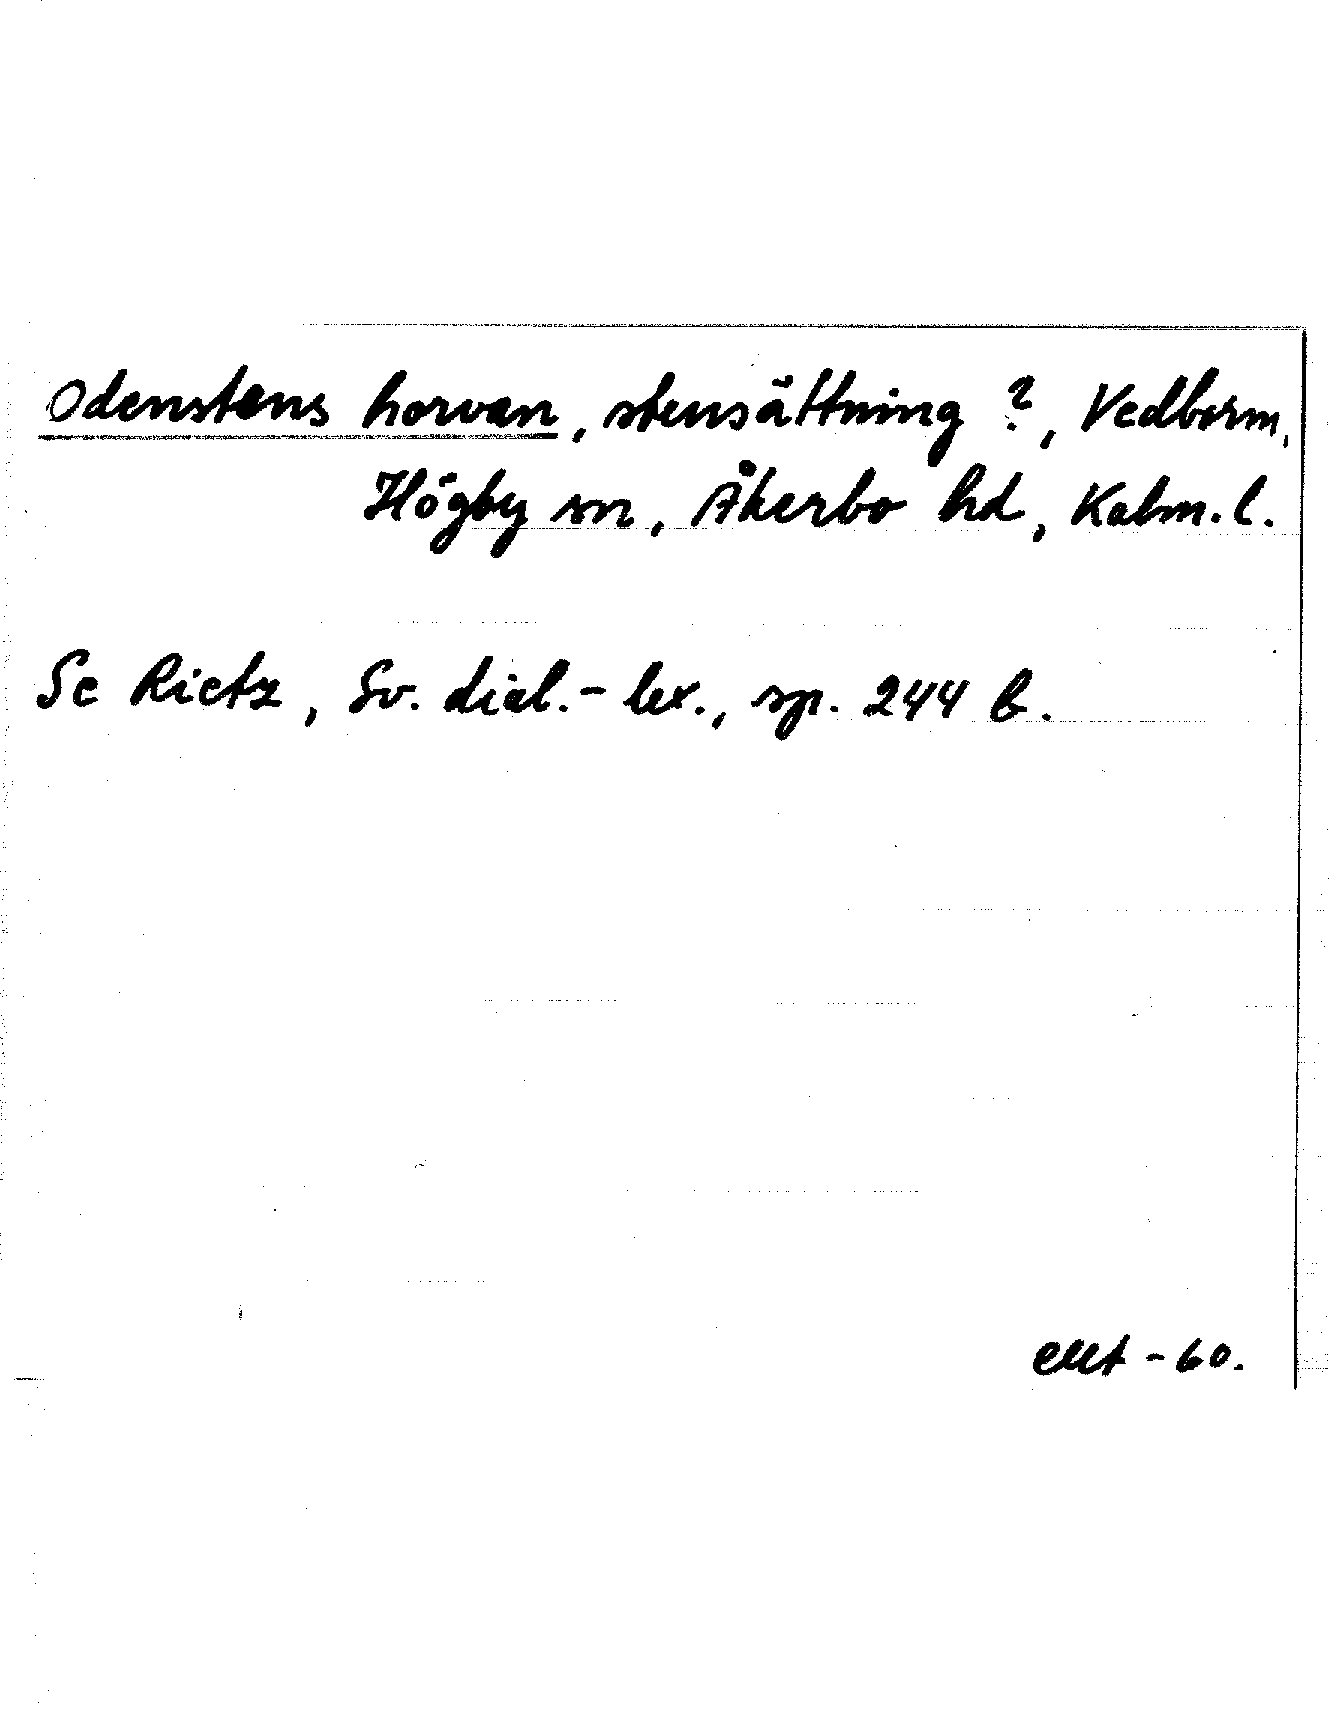 Odenstens horvan, stensättning ?, Vedborm,
Högby sn, Åkerbo hd, Kalm. l.
Se Rietz, Sv. dial.-lex., sp. 244 b.
-60.